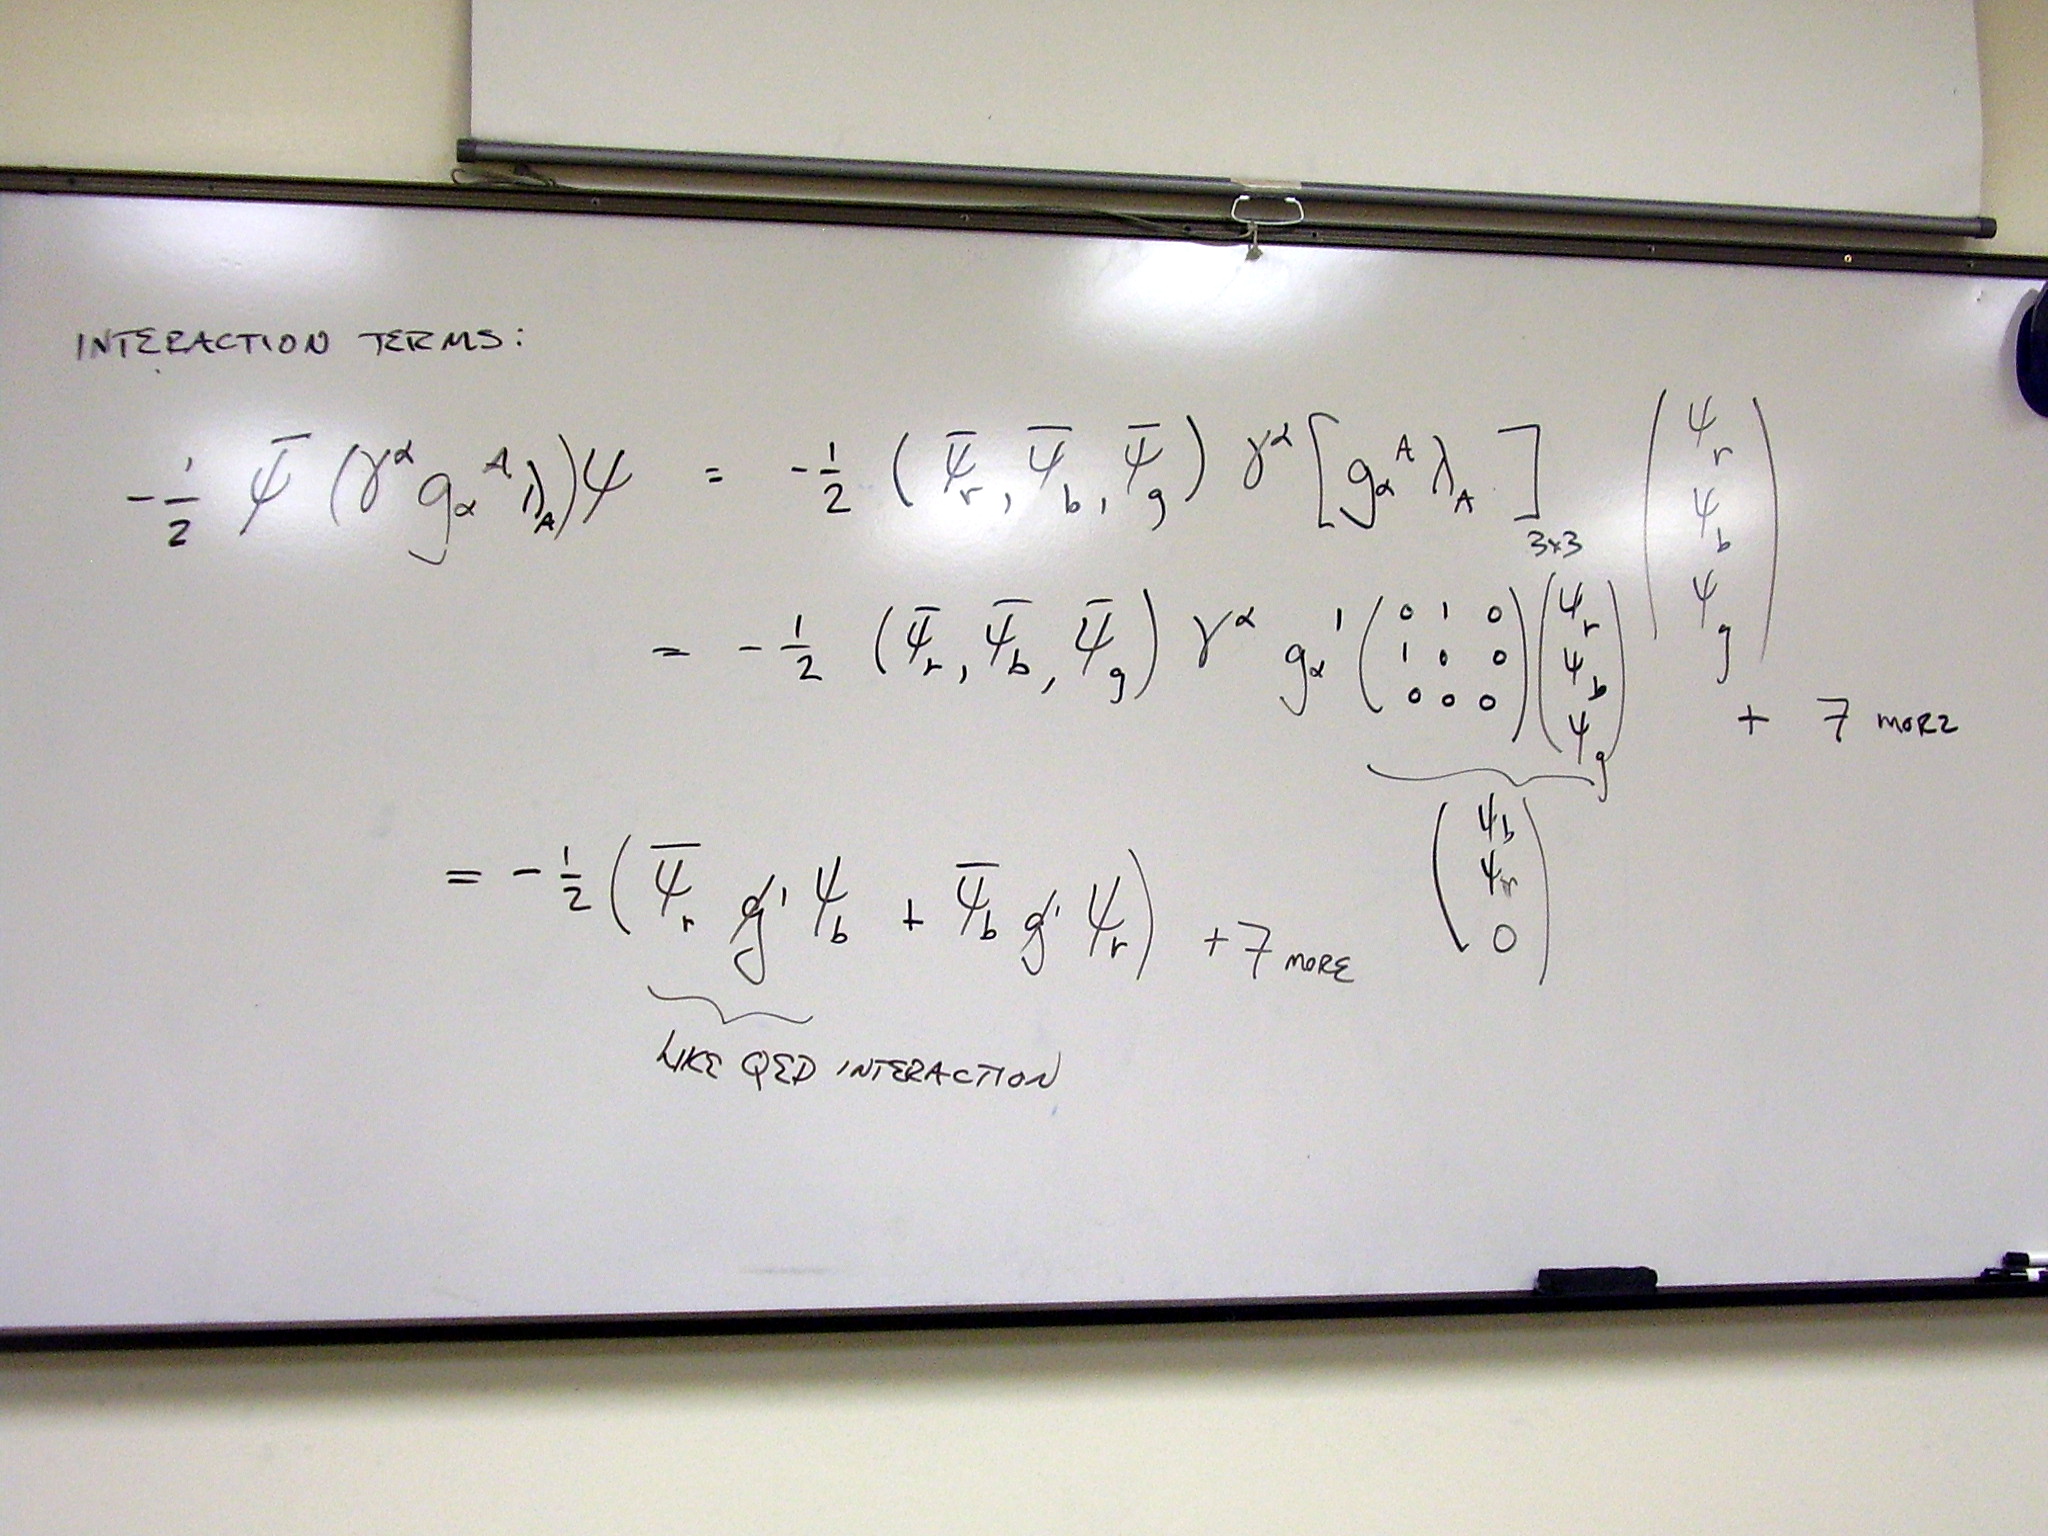 INTERACTION TERMS:
-1/2 ψ̄ (γ^α g_α^A λ_A) ψ = -1/2 (ψ̄_r, ψ̄_b, ψ̄_g) γ^α [g_α^A λ_A]_{3×3} (ψ_r ψ_b ψ_g)
= -1/2 (ψ̄_r, ψ̄_b, ψ̄_g) γ^α g_α^1 (0 1 0
1 0 0
0 0 0) (ψ_r ψ_b ψ_g) + 7 MORE
(ψ_b ψ_r 0)
= -1/2 (ψ̄_r g̸^1 ψ_b + ψ̄_b g̸^1 ψ_r) + 7 MORE
LIKE QED INTERACTION